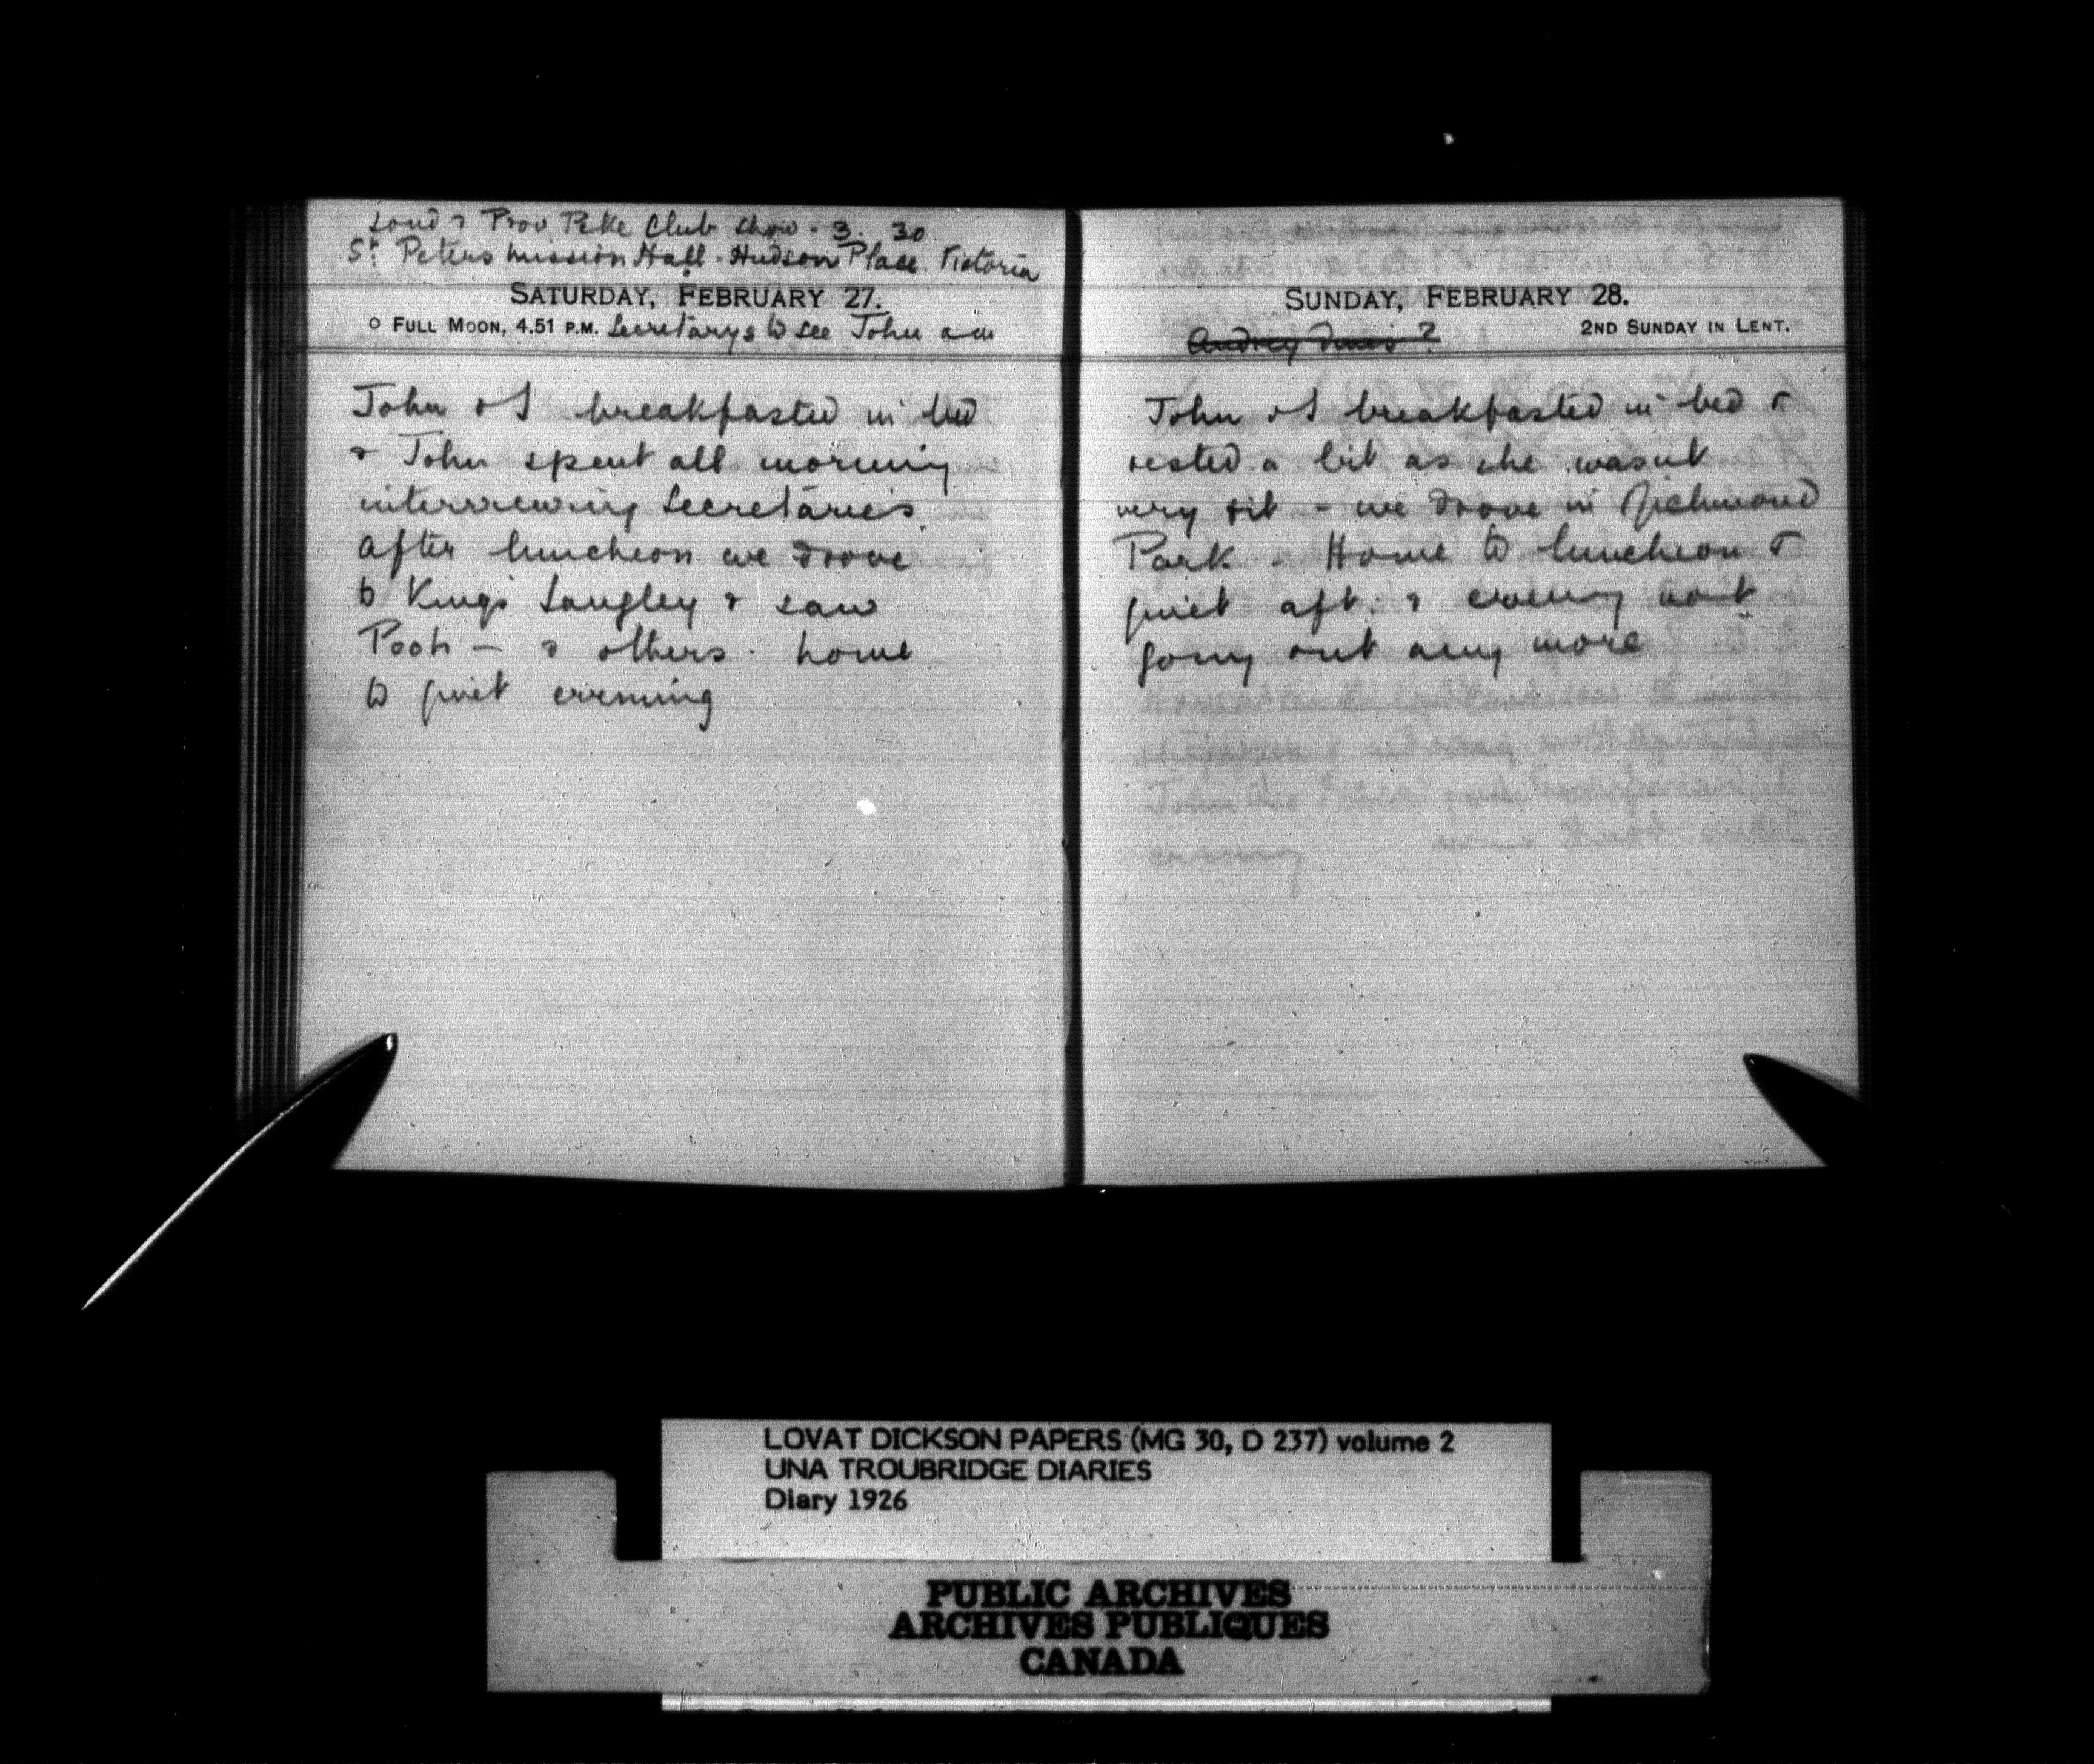 Lond & Prov Peke Club show - 3. 30
St. Peters mission Hall - Hudson Place. Victoria
SATURDAY, FEBRUARY 27.
○ FULL MOON, 4.51 P.M. Secretarys to see John am
John & I breakfasted in bed
& John spent all morning
interviewing Secretaries
after luncheon we drove
to King's Langley & saw
Pooh - & others. home
to quiet evening
SUNDAY, FEBRUARY 28.
2ND SUNDAY IN LENT.
Audrey ?
John & I breakfasted in bed &
rested a bit as she wasnt
very fit - we drove in Richmond
Park - Home to luncheon &
quiet aft. & evening not
going out any more
LOVAT DICKSON PAPERS (MG 30, D 237) volume 2
UNA TROUBRIDGE DIARIES
Diary 1926
PUBLIC ARCHIVES
ARCHIVES PUBLIQUES
CANADA